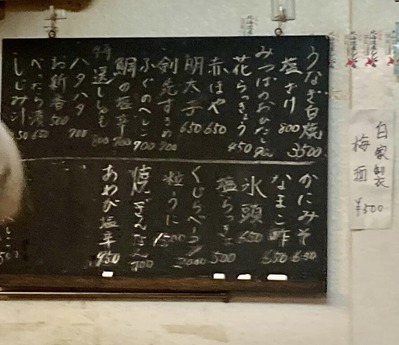 うなぎ白焼 3500
塩ザリ 800
みつばのおひたし
花らっきょう 450
赤ほや 650
明太子 650
剣先するめ 700
ふぐのへしこ 700
鯛の塩辛
特選ししゃも
ハタハタ 700
お新香 500
べったら漬 650
しじみ汁
かにみそ 650
なまこ酢 650
氷頭 650
塩らっきょ 500
くじらベーコン 2000
粒うに 1500
焼ぎんなん 700
あわび塩辛 950
自家製
梅酒
¥500